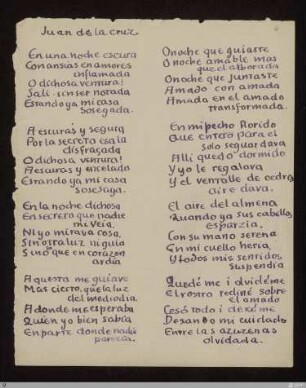 Juan de la Cruz
En una noche escura
Con ansias en amores
inflamada
O dichosa ventura!
Salí sin ser notada
Estando ya mi casa
sosegada.
A escuras y segura
Por la secreta escala
disfraçada
O dichosa ventura!
A escuras y encelada
Estando ya mi casa
sosegada.
En la noche dichosa
En secreto que nadie
me veia.
Ni yo mirava cosa,
Sin otra luz ni guia
Sino que en corazon
ardia
Aquesta me guiave
Mas cierto, que la luz
del mediodia.
A donde me esperaba
Quien yo bien sabia
En parte donde nadie
parecia.
O noche que guiaste
O noche amable mas
que el alborada
O noche que juntaste
Amado con amada
Amada en el amado
transformada.
En mi pecho florido
Que entero para el
solo seguardava
Alli quedo dormido
Y yo le regalava
Y el ventalle de cedro
aire dava.
El aire del almena
Quando ya sus cabellos
esparzia,
Con su mano serena
En mi cuello heria,
Y todos mis sentidos
suspendia
Quedé me i olvidéme
El rostro recliné sobre
el amado
Cesó todo i dexéme
Dexando mi cuidado
Entre las azuzenas
olvidada.